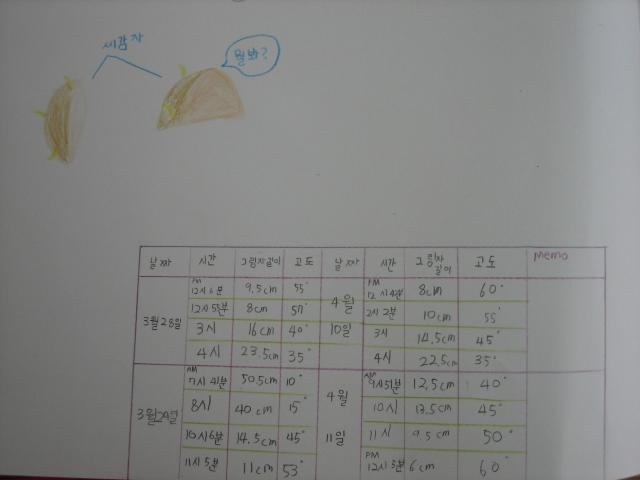 씨감자
뭘봐?
날짜 시간 그림자길이 고도 날짜 시간 그림자길이 고도 Memo
3월28일 PM 12시 6분 9.5cm 55° 4월10일 PM 12시4분 8cm 60°
12시5분 8cm 57° 2시2분 10cm 55°
3시 16cm 40° 3시 14.5cm 45°
4시 23.5cm 35° 4시 22.5cm 35°
3월29일 AM 7시41분 50.5cm 10° 4월11일 AM 9시51분 12.5cm 40°
8시 40cm 15° 10시 13.5cm 45°
10시6분 14.5cm 45° 11시 9.5cm 50°
11시5분 11cm 53° PM 12시3분 6cm 60°